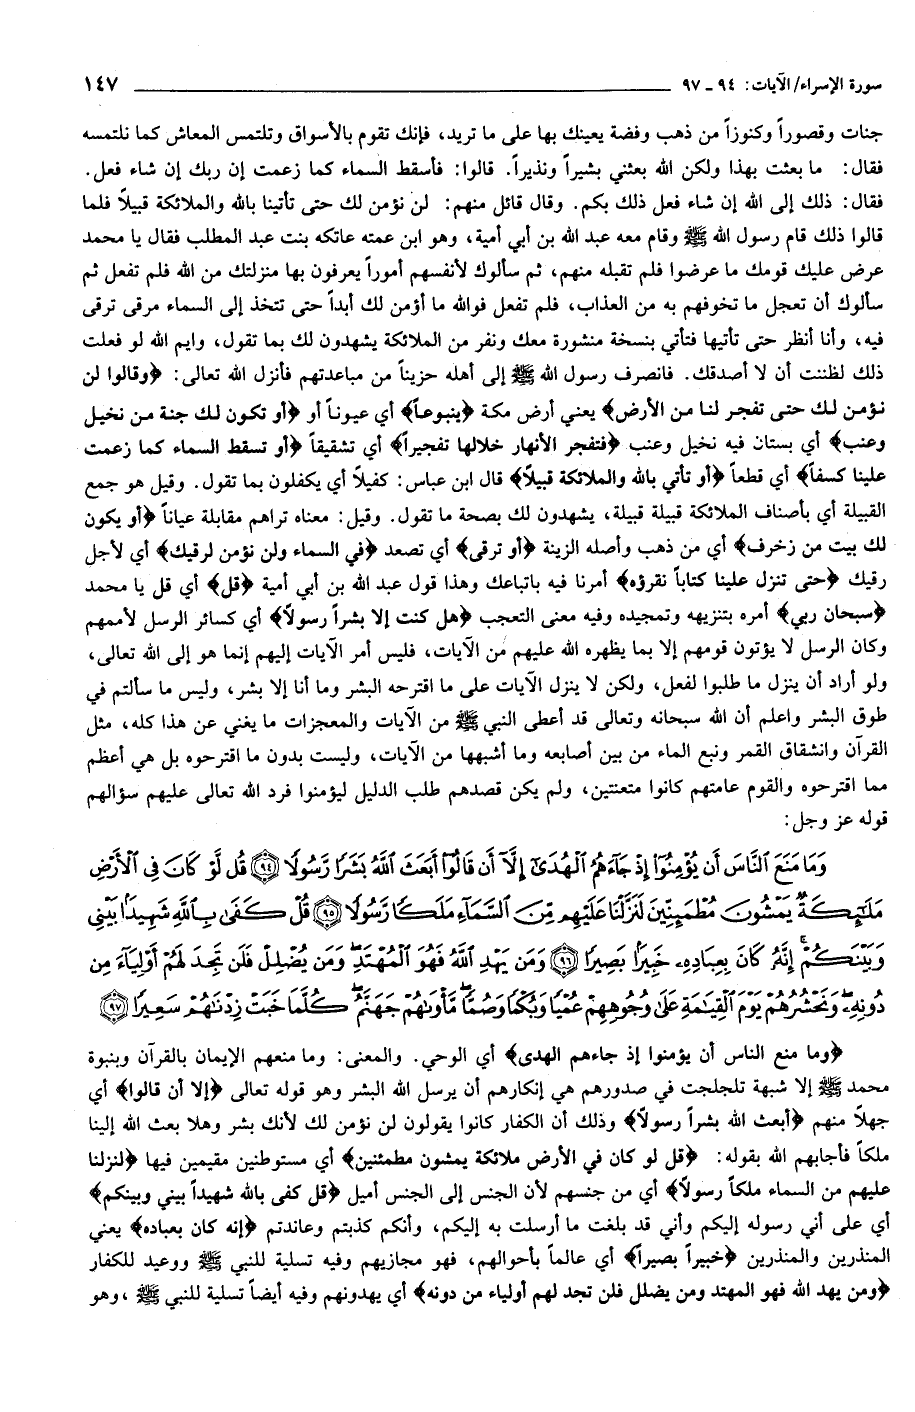 سورة الإسراء/ الآيات: ٩٤ ـ ٩٧ ١٤٧
جنات وقصوراً وكنوزاً من ذهب وفضة يعينك بها على ما تريد، فإنك تقوم بالأسواق وتلتمس المعاش كما نلتمسه
فقال: ما بعثت بهذا ولكن الله بعثني بشيراً ونذيراً. قالوا: فأسقط السماء كما زعمت إن ربك إن شاء فعل.
فقال: ذلك إلى الله إن شاء فعل ذلك بكم. وقال قائل منهم: لن نؤمن لك حتى تأتينا بالله والملائكة قبيلاً فلما
قالوا ذلك قام رسول الله ﷺ وقام معه عبد الله بن أبي أمية، وهو ابن عمته عاتكه بنت عبد المطلب فقال يا محمد
عرض عليك قومك ما عرضوا فلم تقبله منهم، ثم سألوك لأنفسهم أموراً يعرفون بها منزلتك من الله فلم تفعل ثم
سألوك أن تعجل ما تخوفهم به من العذاب، فلم تفعل فوالله ما أؤمن لك أبداً حتى تتخذ إلى السماء مرقى ترقى
فيه، وأنا أنظر حتى تأتيها فتأتي بنسخة منشورة معك ونفر من الملائكة يشهدون لك بما تقول، وايم الله لو فعلت
ذلك لظننت أن لا أصدقك. فانصرف رسول الله ﷺ إلى أهله حزيناً من مباعدتهم فأنزل الله تعالى: ﴿وقالوا لن
نؤمن لك حتى تفجر لنا من الأرض﴾ يعني أرض مكة ﴿ينبوعاً﴾ أي عيوناً أو ﴿أو تكون لك جنة من نخيل
وعنب﴾ أي بستان فيه نخيل وعنب ﴿فتفجر الأنهار خلالها تفجيراً﴾ أي تشقيقاً ﴿أو تسقط السماء كما زعمت
علينا كسفاً﴾ أي قطعاً ﴿أو تأتي بالله والملائكة قبيلاً﴾ قال ابن عباس: كفيلاً أي يكفلون بما تقول. وقيل هو جمع
القبيلة أي بأصناف الملائكة قبيلة قبيلة، يشهدون لك بصحة ما تقول. وقيل: معناه تراهم مقابلة عياناً ﴿أو يكون
لك بيت من زخرف﴾ أي من ذهب وأصله الزينة ﴿أو ترقى﴾ أي تصعد ﴿في السماء ولن نؤمن لرقيك﴾ أي لأجل
رقيك ﴿حتى تنزل علينا كتاباً نقرؤه﴾ أمرنا فيه باتباعك وهذا قول عبد الله بن أبي أمية ﴿قل﴾ أي قل يا محمد
﴿سبحان ربي﴾ أمره بتنزيهه وتمجيده وفيه معنى التعجب ﴿هل كنت إلا بشراً رسولاً﴾ أي كسائر الرسل لأممهم
وكان الرسل لا يؤتون قومهم إلا بما يظهره الله عليهم من الآيات، فليس أمر الآيات إليهم إنما هو إلى الله تعالى،
ولو أراد أن ينزل ما طلبوا لفعل، ولكن لا ينزل الآيات على ما اقترحه البشر وما أنا إلا بشر، وليس ما سألتم في
طوق البشر واعلم أن الله سبحانه وتعالى قد أعطى النبي ﷺ من الآيات والمعجزات ما يغني عن هذا كله، مثل
القرآن وانشقاق القمر ونبع الماء من بين أصابعه وما أشبهها من الآيات، وليست بدون ما اقترحوه بل هي أعظم
مما اقترحوه والقوم عامتهم كانوا متعنتين، ولم يكن قصدهم طلب الدليل ليؤمنوا فرد الله تعالى عليهم سؤالهم
قوله عز وجل:
وَمَا مَنَعَ النَّاسَ أَن يُؤْمِنُوٓا إِذْ جَآءَهُمُ الْهُدَىٰٓ إِلَّآ أَن قَالُوٓا أَبَعَثَ اللَّهُ بَشَرًا رَّسُولًا ٩٤ قُل لَّوْ كَانَ فِى الْأَرْضِ
مَلَٰٓئِكَةٌ يَمْشُونَ مُطْمَئِنِّينَ لَنَزَّلْنَا عَلَيْهِم مِّنَ السَّمَآءِ مَلَكًا رَّسُولًا ٩٥ قُلْ كَفَىٰ بِاللَّهِ شَهِيدًۢا بَيْنِى
وَبَيْنَكُمْ ۚ إِنَّهُۥ كَانَ بِعِبَادِهِۦ خَبِيرًۢا بَصِيرًا ٩٦ وَمَن يَهْدِ اللَّهُ فَهُوَ الْمُهْتَدِ ۖ وَمَن يُضْلِلْ فَلَن تَجِدَ لَهُمْ أَوْلِيَآءَ مِن
دُونِهِۦ ۖ وَنَحْشُرُهُمْ يَوْمَ الْقِيَٰمَةِ عَلَىٰ وُجُوهِهِمْ عُمْيًا وَبُكْمًا وَصُمًّا ۖ مَّأْوَىٰهُمْ جَهَنَّمُ ۖ كُلَّمَا خَبَتْ زِدْنَٰهُمْ سَعِيرًا ٩٧
﴿وما منع الناس أن يؤمنوا إذ جاءهم الهدى﴾ أي الوحي. والمعنى: وما منعهم الإيمان بالقرآن وبنبوة
محمد ﷺ إلا شبهة تلجلجت في صدورهم هي إنكارهم أن يرسل الله البشر وهو قوله تعالى ﴿إلا أن قالوا﴾ أي
جهلاً منهم ﴿أبعث الله بشراً رسولاً﴾ وذلك أن الكفار كانوا يقولون لن نؤمن لك لأنك بشر وهلا بعث الله إلينا
ملكاً فأجابهم الله بقوله: ﴿قل لو كان في الأرض ملائكة يمشون مطمئنين﴾ أي مستوطنين مقيمين فيها ﴿لنزلنا
عليهم من السماء ملكاً رسولاً﴾ أي من جنسهم لأن الجنس إلى الجنس أميل ﴿قل كفى بالله شهيداً بيني وبينكم﴾
أي على أني رسوله إليكم وأني قد بلغت ما أرسلت به إليكم، وأنكم كذبتم وعاندتم ﴿إنه كان بعباده﴾ يعني
المنذرين والمنذرين ﴿خبيراً بصيراً﴾ أي عالماً بأحوالهم، فهو مجازيهم وفيه تسلية للنبي ﷺ ووعيد للكفار
﴿ومن يهد الله فهو المهتد ومن يضلل فلن تجد لهم أولياء من دونه﴾ أي يهدونهم وفيه أيضاً تسلية للنبي ﷺ ،وهو